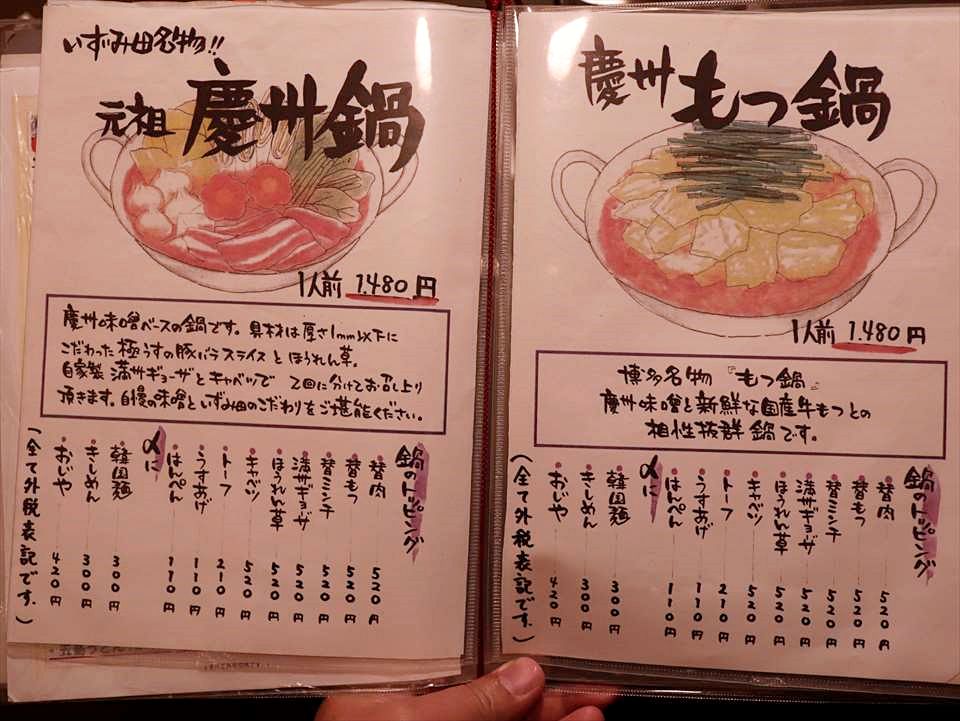 いずみ田名物!!
元祖 慶州鍋
1人前 1.480円
慶州味噌ベースの鍋です。具材は厚さ1mm以下に
こだわった極うすの豚バラスライスとほうれん草。
自家製 満州ギョーザとキャベツで 2回に分けてお召し上り
頂きます。自慢の味噌といずみ田のこだわりをご堪能ください。
鍋のトッピング
替肉 520円
替もつ 520円
替ミンチ 520円
満州ギョーザ 520円
ほうれん草 520円
キャベツ 520円
トーフ 210円
うすあげ 110円
はんぺん 110円
〆に
韓国麺 300円
きしめん 300円
おじや 420円
(全て外税表記です.)
慶州もつ鍋
1人前 1.480円
博多名物『もつ鍋』
慶州味噌と新鮮な国産牛もつとの
相性抜群鍋です。
鍋のトッピング
替肉 520円
替もつ 520円
替ミンチ 520円
満州ギョーザ 520円
ほうれん草 520円
キャベツ 520円
トーフ 210円
うすあげ 110円
はんぺん 110円
〆に
韓国麺 300円
きしめん 300円
おじや 420円
(全て外税表記です.)